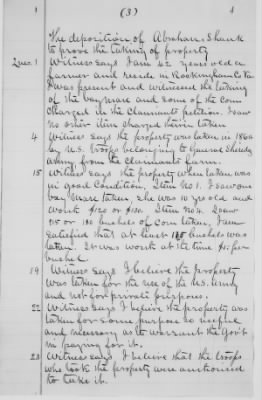 1 (3) 1
The deposition of Abraham Shank
to prove the taking of property
Ques. 1 Witness says I am 42 years old a
farmer and reside in Rockingham Co Va
I was present and witnessed the taking
of the bay mare and some of the corn
charged in the Claimants petition. I saw
no other item charged therein taken
4 Witness says the property was taken in 1862
by U.S. troops belonging to General Shields
army, from the claimants farm.
15 Witness says the property when taken was
in good Condition, Item No. 1. I saw one
bay mare taken. She was 10 yrs old and
worth $120 or $130. Item No. 2. I saw
175 or 180 bushels of corn taken, I am
satisfied that at least 175 bushels was
taken. It was worth at the time $1. per
bushel
19 Witness says I believe the property
was taken for the use of the U.S. army
and not for private purposes.
22 Witness says I believe the property was
taken for some purpose so useful
and necessary as to warrant the Gov't
in paying for it.
23 Witness says I believe that the troops
who took the property were authorized
to take it.